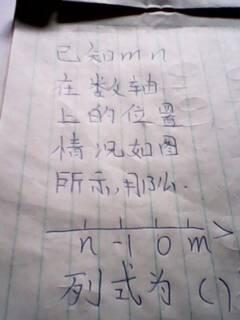 已知m n
在数轴
上的位置
情况如图
所示,用
n -1 0 m
列式为()